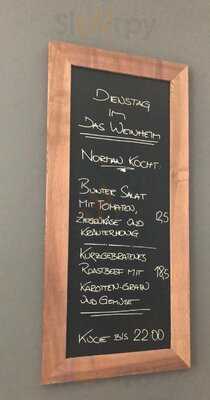 Sluurpy
DIENSTAG
IM
DAS WEINHEIM
NORMAN KOCHT:
BUNTER SALAT
MIT TOMATEN,
ZIEGENKÄSE UND 12,5
KRÄUTERHONIG
KURZGEBRATENES
ROASTBEEF MIT 18,5
KAROTTEN-
UND GEMÜSE
KÜCHE BIS 22:00